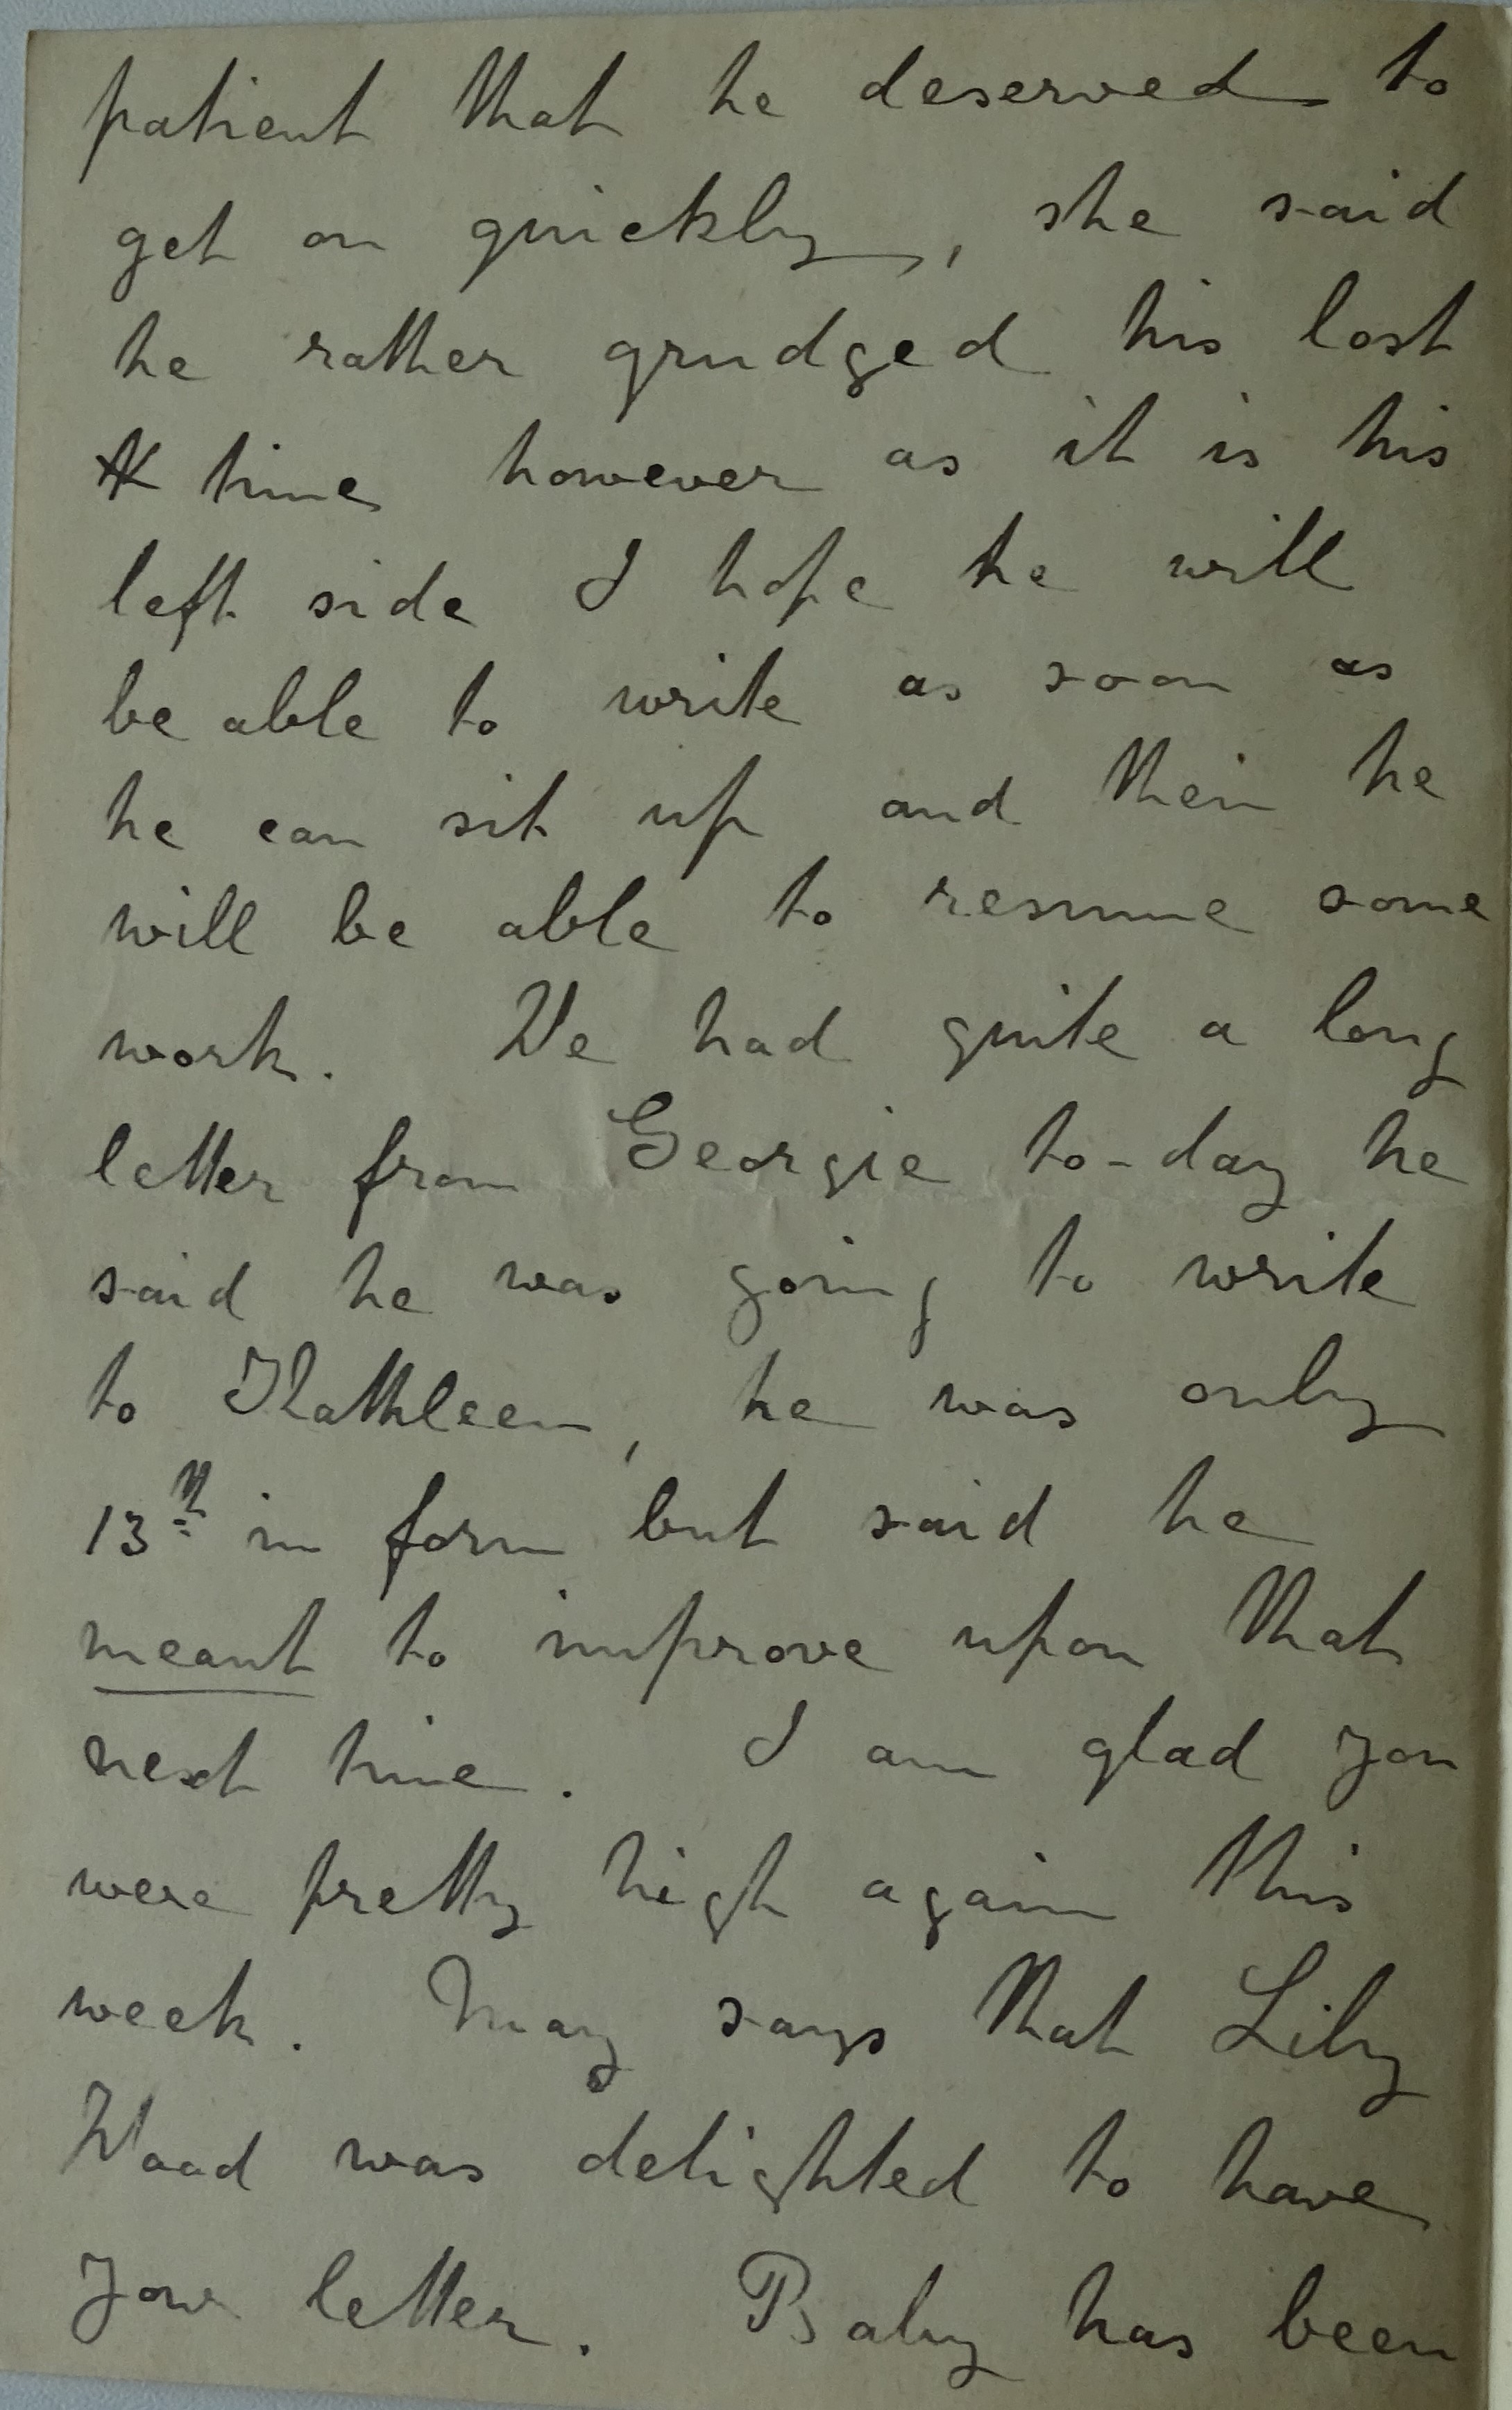 patient that he deserved to
get on quickly, she said
he rather grudged his lost
time however as it is his
left side I hope he will
be able to write as soon as
he can sit up and then he
will be able to resume some
work. We had quite a long
letter from Georgie to-day he
said he was going to write
to Kathleen, he was only
13th in form but said he
meant to improve upon that
next time. I am glad you
were pretty high again this
week. May says that Lily
Wood was delighted to have
your letter. Baby has been